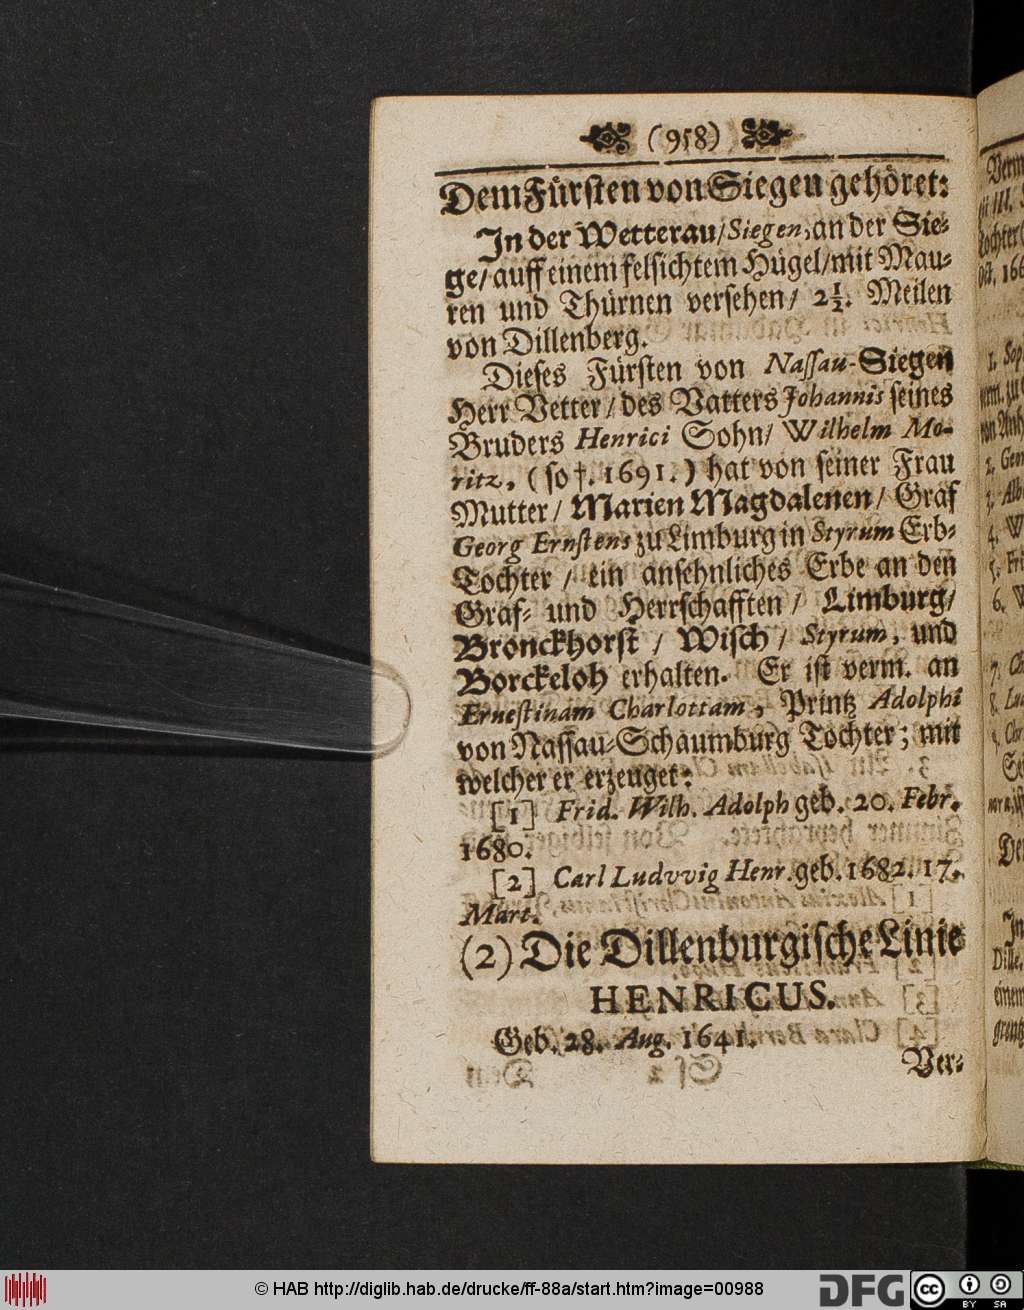 (958)
Dem Fürsten von Siegen gehöret:
In der Wetterau/ Siegen, an der Sie-
ge/ auff einem felsichtem Hügel/ mit Mau-
ren und Thürnen versehen/ 2½. Meilen
von Dillenberg.
Dieses Fürsten von Nassau-Siegen
Herr Vetter/ des Vatters Johannis seines
Bruders Henrici Sohn/ Wilhelm Mo-
ritz, (so †. 1691.) hat von seiner Frau
Mutter/ Marien Magdalenen/ Graf
Georg Ernstens zu Limburg in Styrum Erb-
Tochter / ein ansehnliches Erbe an den
Graf- und Herrschafften/ Limburg/
Bronckhorst / Wisch / Styrum, und
Borckeloh erhalten. Er ist verm. an
Ernestinam Charlottam, Printz Adolphi
von Nassau-Schaumburg Tochter; mit
welcher er erzeuget:
[1] Frid. Wilh. Adolph geb. 20. Febr.
1680.
[2] Carl Ludvvig Henr. geb. 1682. 17.
Mart.
(2) Die Dillenburgische Linie
HENRICUS.
Geb. 28. Aug. 1641.
Ver-
© HAB http://diglib.hab.de/drucke/ff-88a/start.htm?image=00988
DFG
cc
BY SA